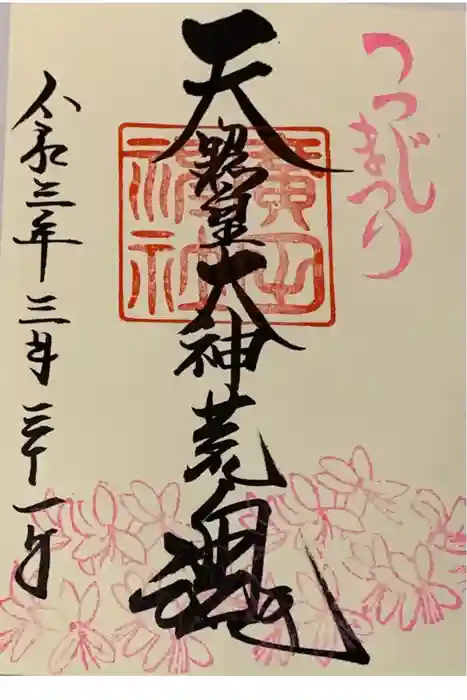 つつじ
まつり
天照皇大神荒魂
廣田
神社
令和三年三月三十一日